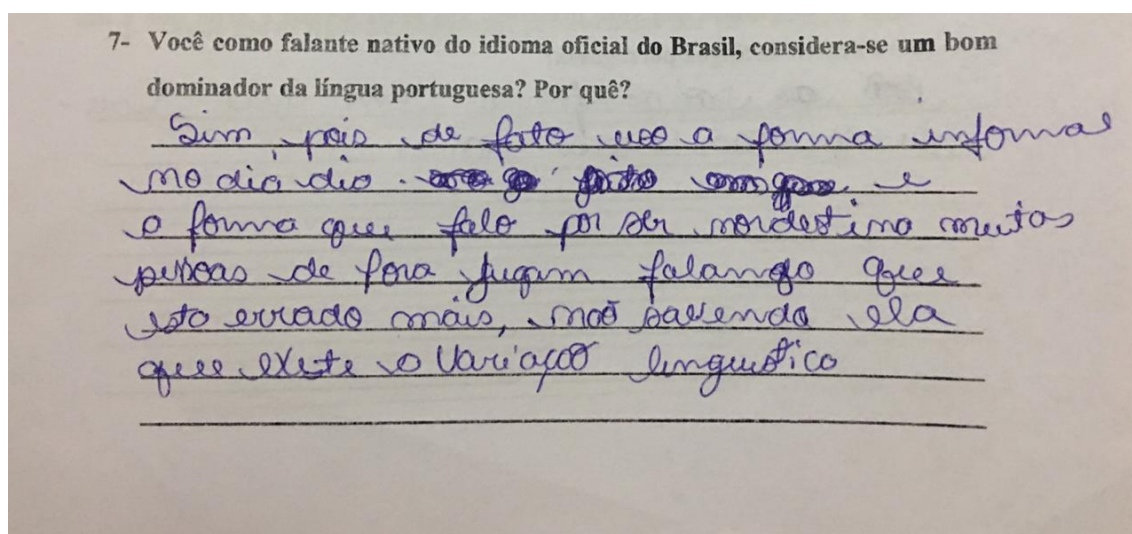 7- Você como falante nativo do idioma oficial do Brasil, considera-se um bom
dominador da língua portuguesa? Por quê?
Sim, pois de fato uso a forma informal
no dia dia. e
a forma que falo por ser nordestino muitas
pessoas de fora jugam falango que
esta errado mais, não sabendo ela
que existe a variação linguistico